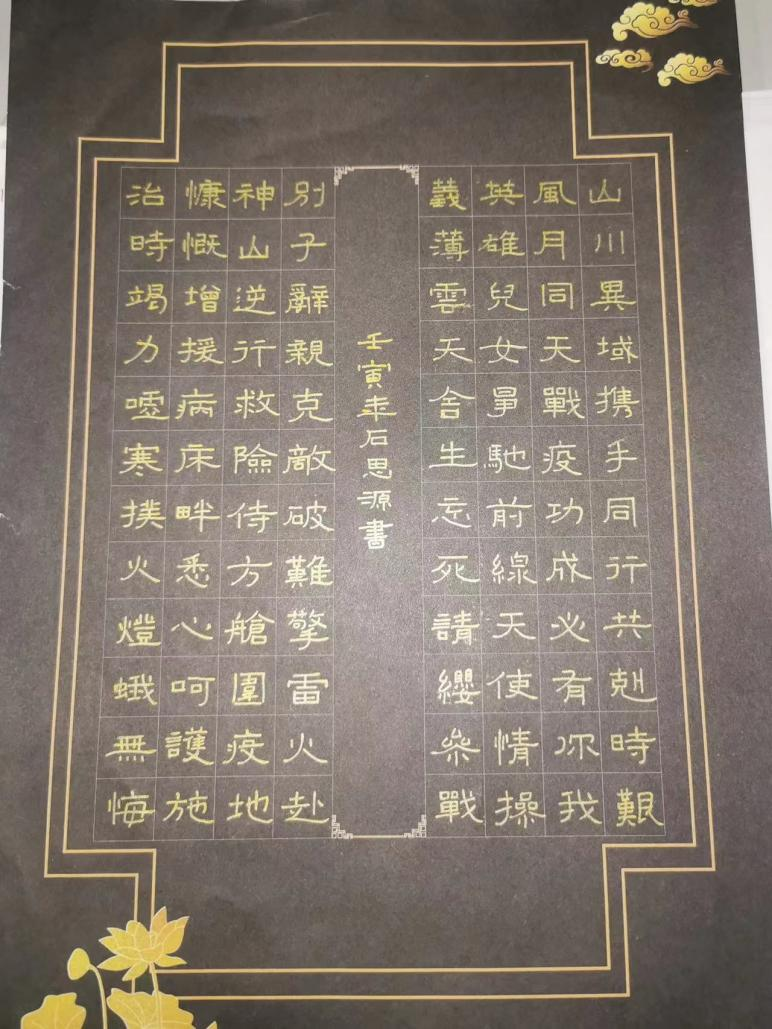 山川異域携手同行共剋時艱
風月同天戰疫功成必有你我
英雄兒女爭馳前線天使情操
義薄雲天舍生忘死請纓參戰
壬寅年石思源書
別子辭親克敵破難擎雷火赴
神山逆行救險侍方艙圍疫地
慷慨增援病床畔悉心呵護施
治時竭力噓寒撲火燈蛾無悔